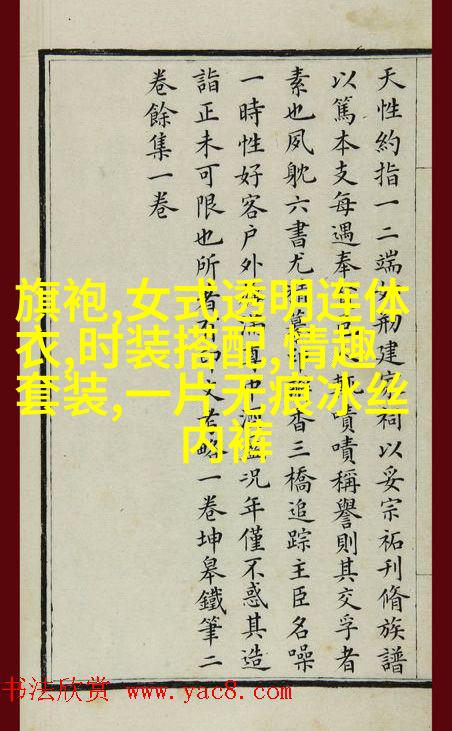 天性約指一二端刱建宗祠以妥宗祏刊脩族譜
以篤本支每遇奉嘖嘖稱譽則其交孚者
素也夙躭六書尤摹香三橋追踪主臣名噪
一時性好客戶外況年僅不惑其造
詣正未可限也所著有印文考略一卷坤皋鐵筆二
卷餘集一卷
旗袍,女式透明连体
衣,时装搭配,情趣
套装,一片无痕冰丝
内裤
书法欣赏 www.yac8.com